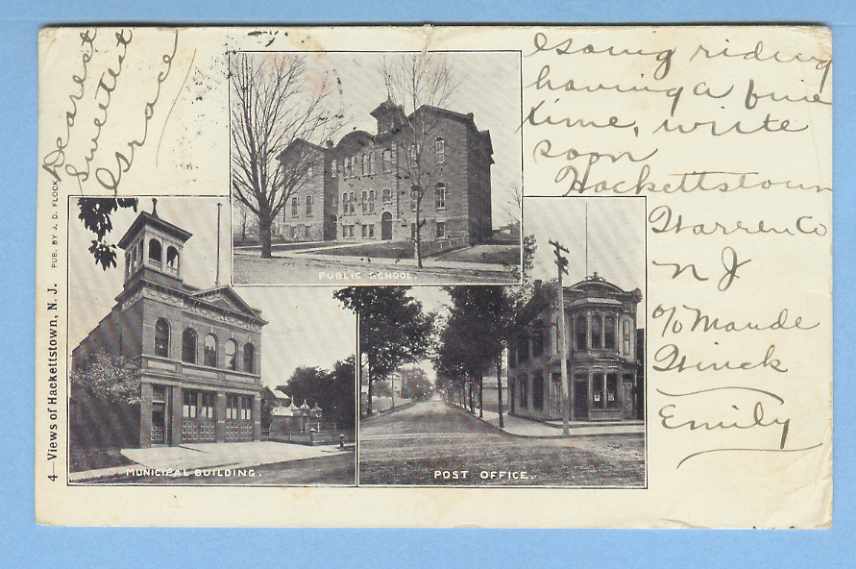 Dearest
Sweetest
Grace
going riding
having a fine
time, write
soon
Hackettstown
Warren Co
N J
c/o Maude
Winck
Emily
PUBLIC SCHOOL.
MUNICIPAL BUILDING.
POST OFFICE.
4—Views of Hackettstown, N. J. PUB. BY J. D. FLOCK